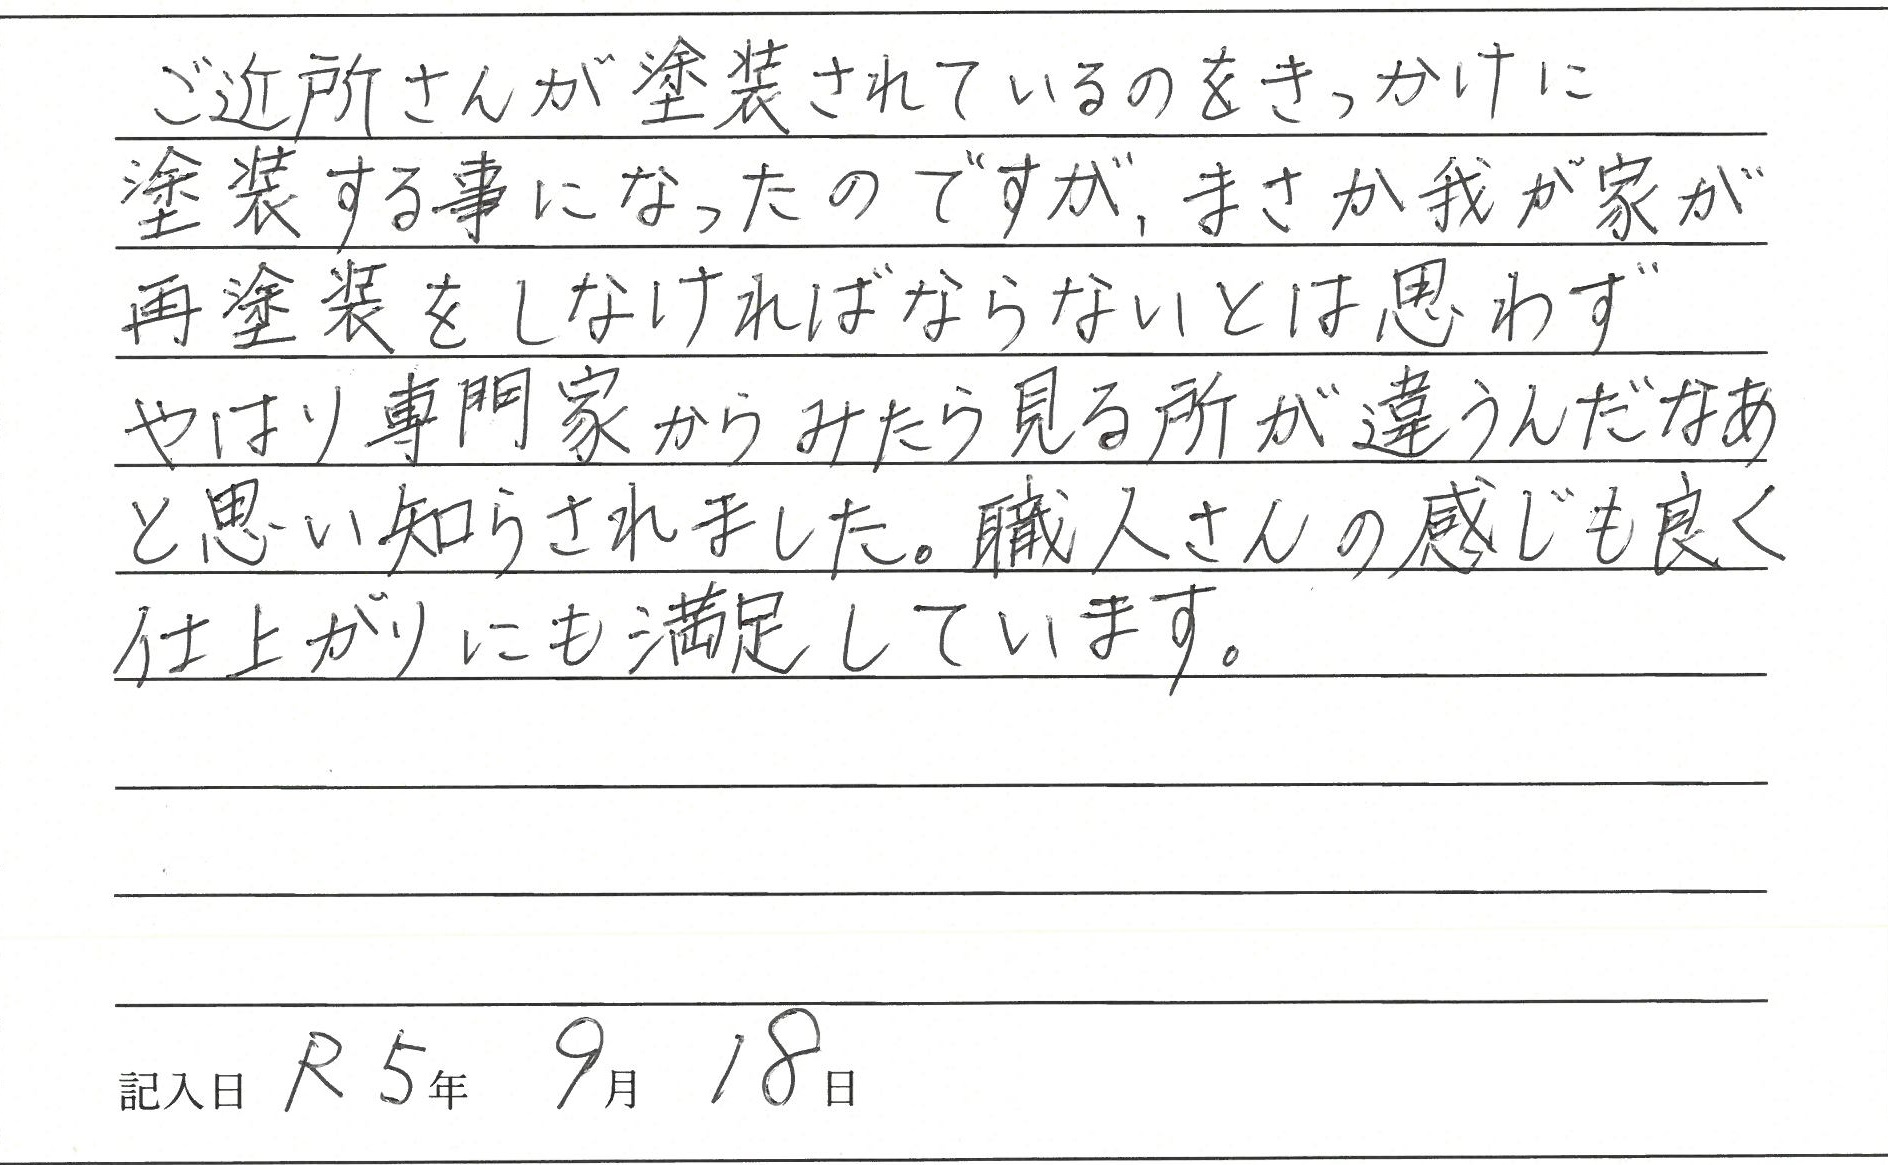 ご近所さんが塗装されているのをきっかけに
塗装する事になったのですが、まさか我が家が
再塗装をしなければならないとは思わず
やはり専門家からみたら見る所が違うんだなあ
と思い知らされました。職人さんの感じも良く
仕上がりにも満足しています。
記入日 R5年 9月 18日